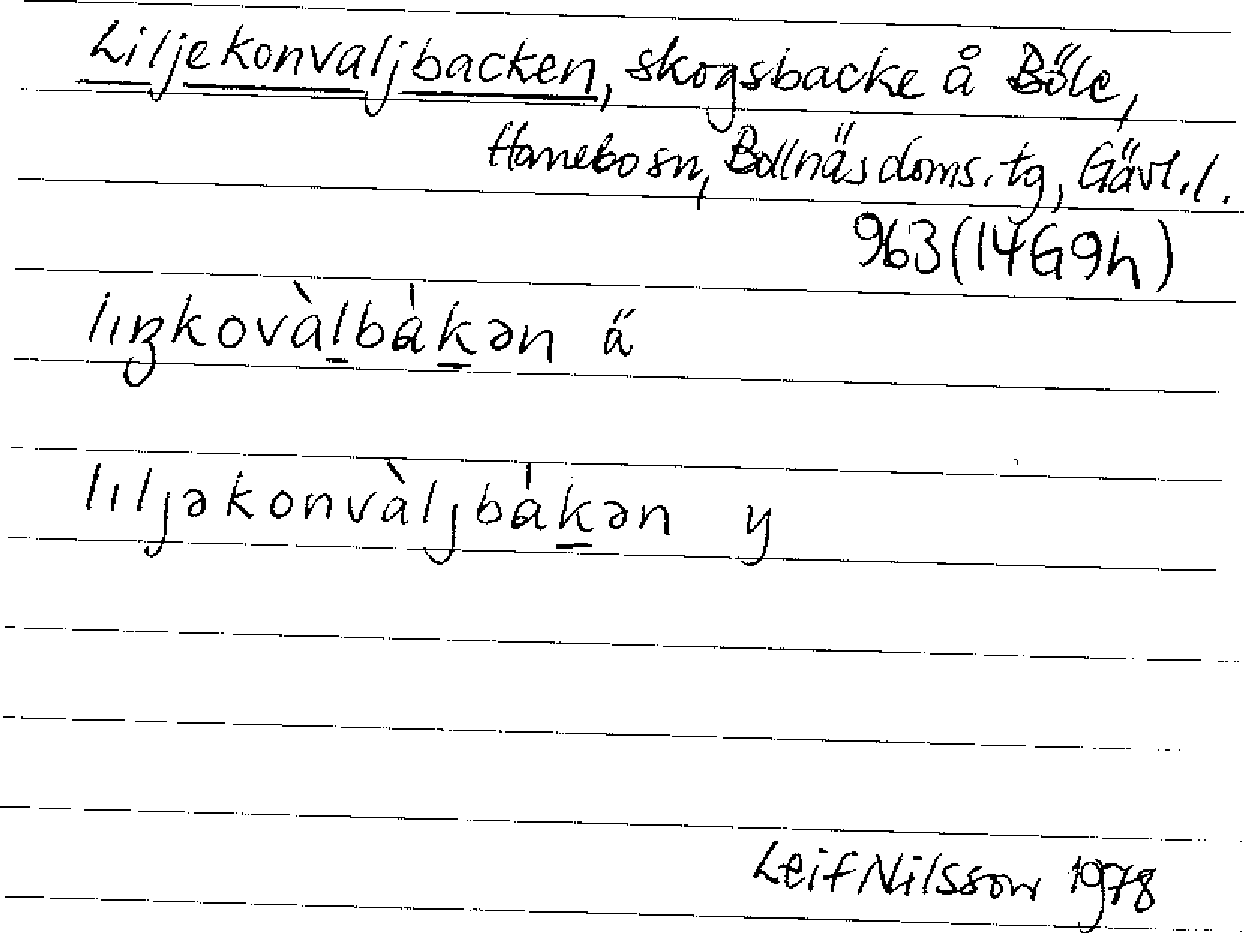 Liljekonvaljbacken, skogsbacke å Böle,
Hanebo sn, Bollnäs doms. tg, Gävl. l.
963 (14G9h)
kovàlbákən ä
lıljəkonvàljbákən y
Leif Nilsson 1978